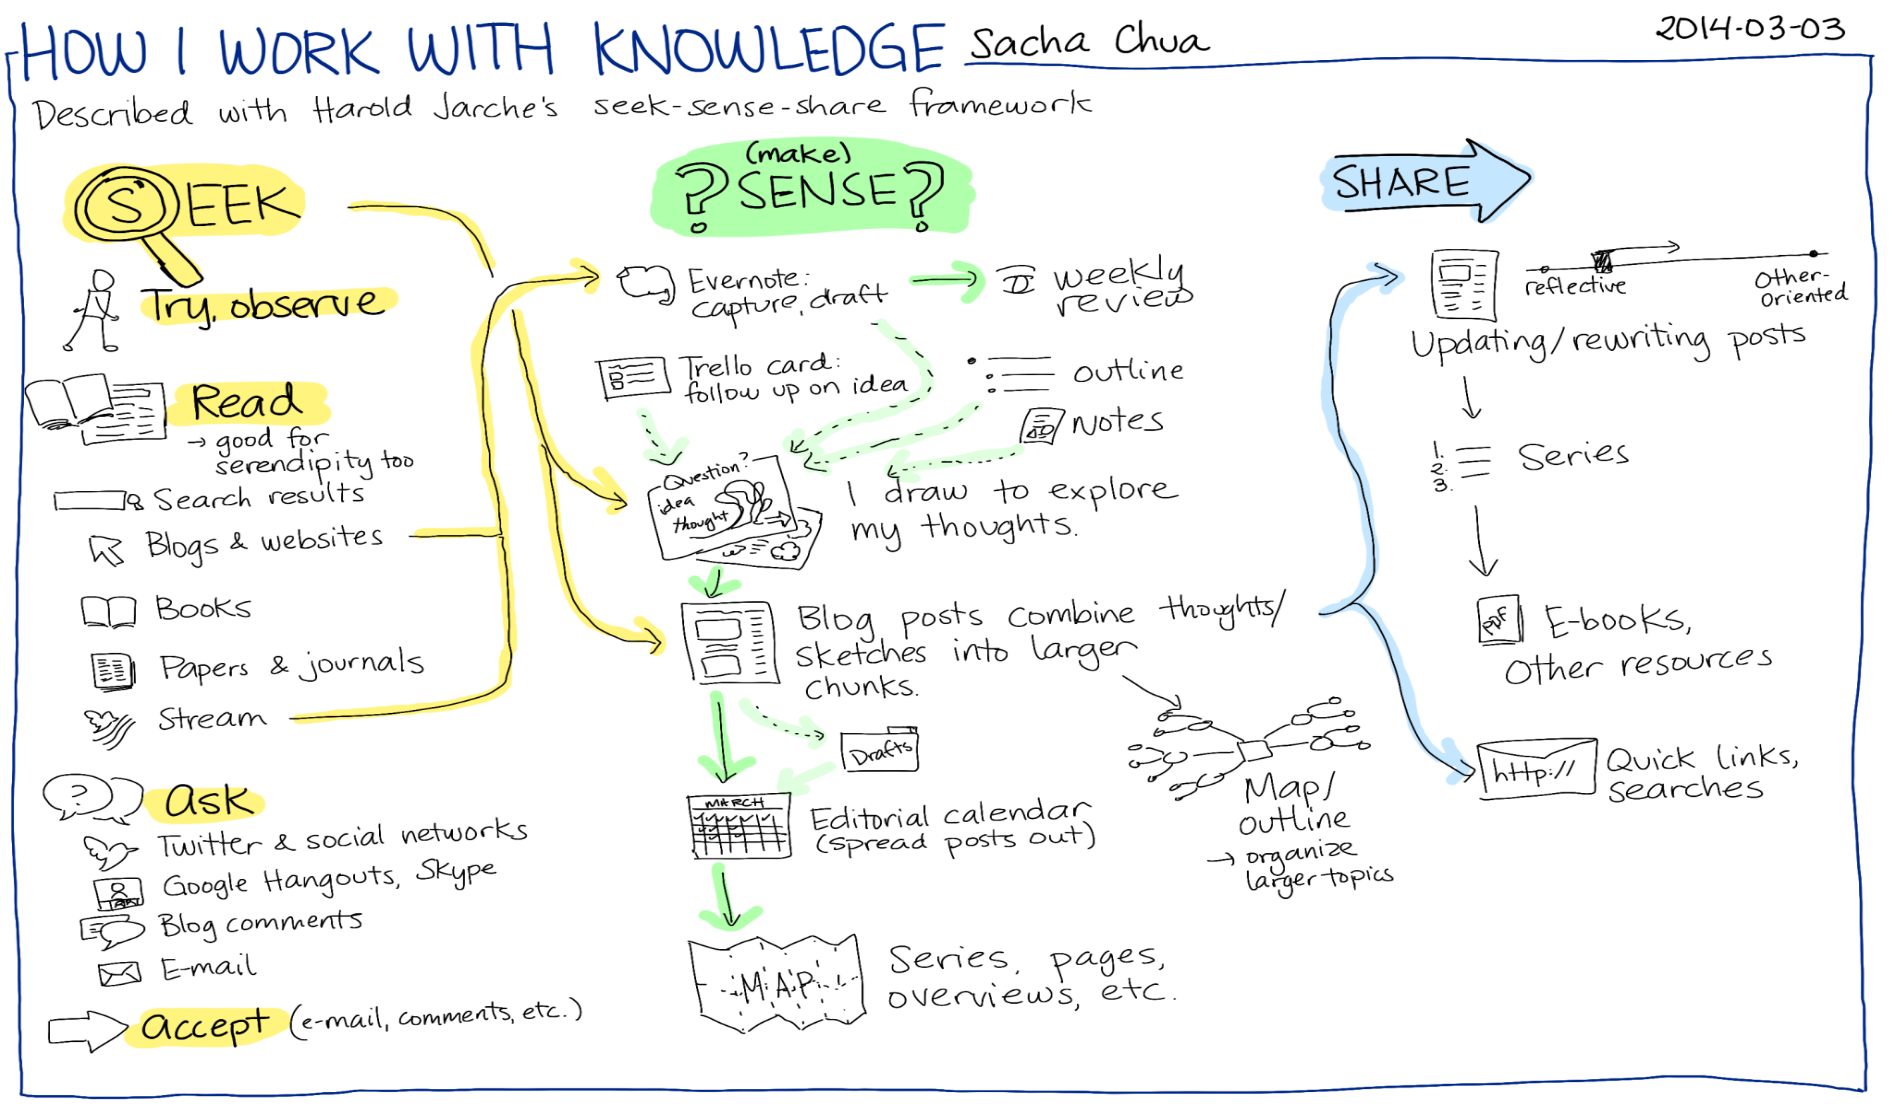 HOW I WORK WITH KNOWLEDGE Sacha Chua
2014-03-03
Described with Harold Jarche's seek-sense-share framework
SEEK
Try, observe
Read
→ good for
serendipity too
Search results
Blogs & websites
Books
Papers & journals
Stream
?
Ask
Twitter & social networks
Google Hangouts, Skype
Blog comments
E-mail
accept (e-mail, comments, etc.)
(make)
? SENSE ?
Evernote:
capture, draft
weekly
review
Trello card:
follow up on idea
outline
Notes
Question?
idea
thought
I draw to explore
my thoughts.
Blog posts combine thoughts/
sketches into larger
chunks.
Drafts
MARCH
Editorial calendar
(spread posts out)
Map/
outline
→ organize
larger topics
MAP
Series, pages,
overviews, etc.
SHARE
reflective
Other-
oriented
Updating/rewriting posts
1.
2.
3.
Series
PDF
E-books,
Other resources
http://
Quick links,
searches